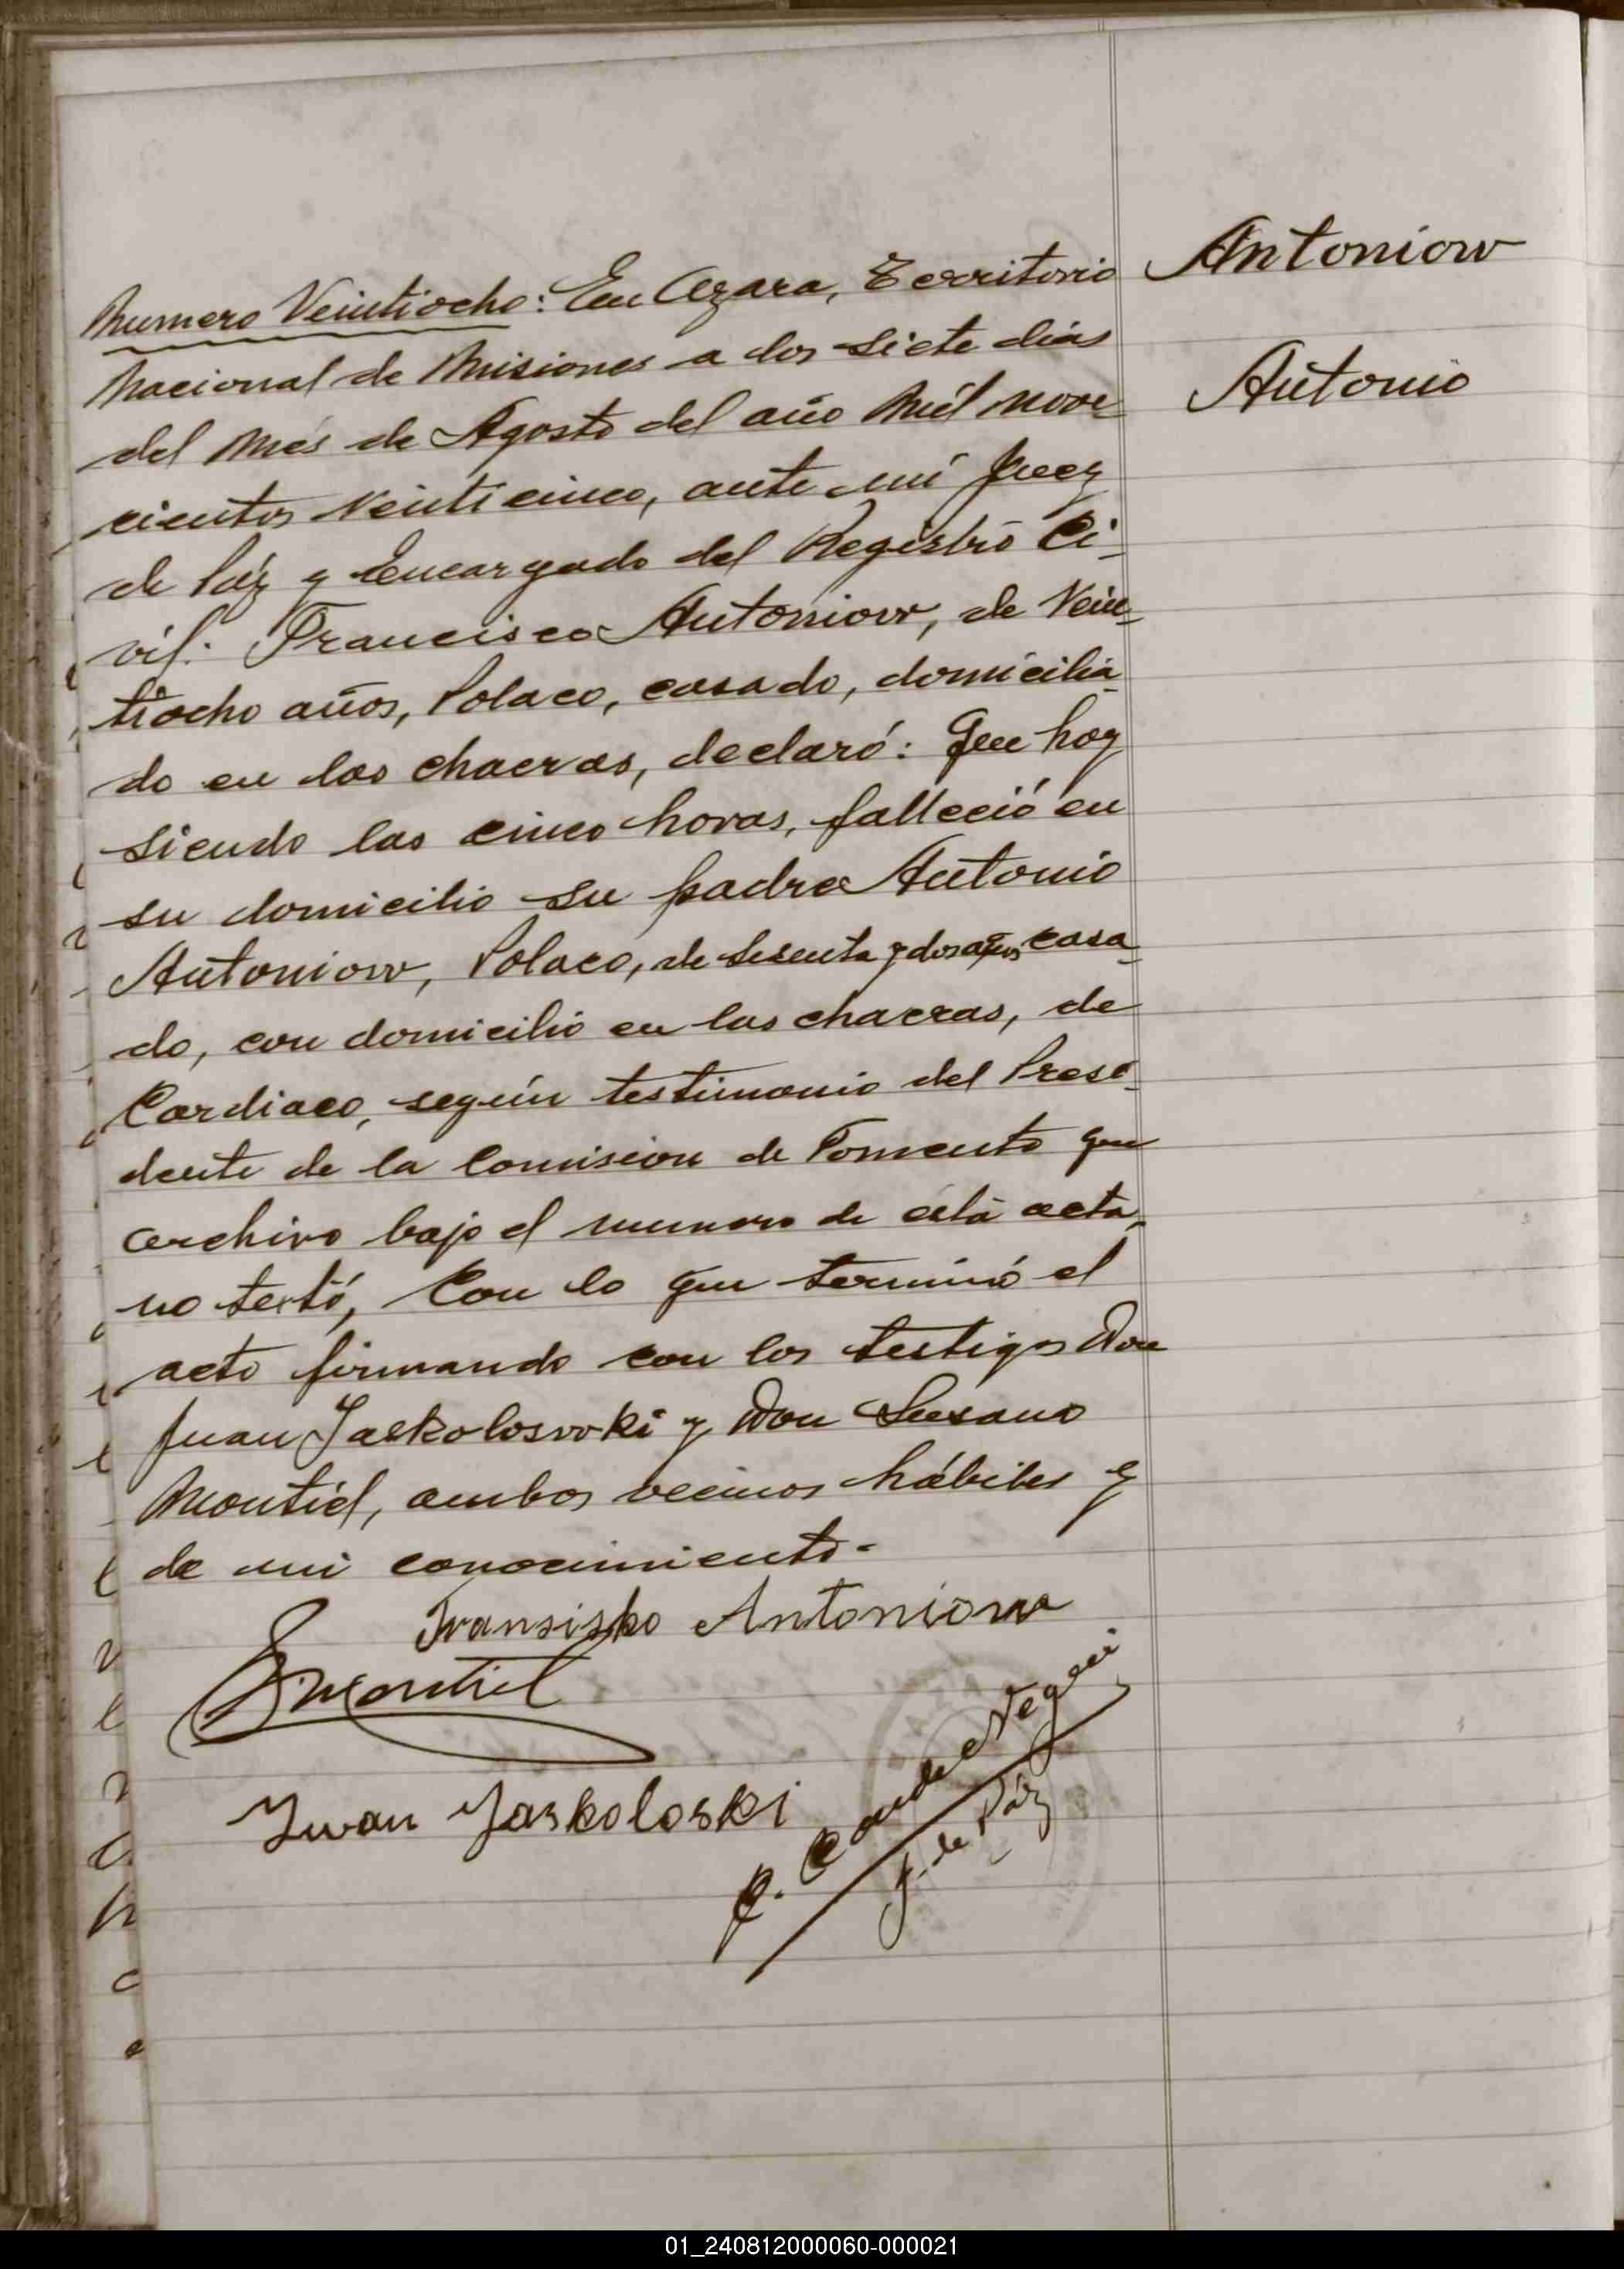 Antoniow
Antonio
Numero Veintiocho: En Azara, Territorio
Nacional de Misiones a los siete dias
del Més de Agosto del año Mil nove
cientos Veinticinco, ante mi Juez
de Páz y Encargado del Registro Ci-
vil: Francisco Antoniow, de Vein-
tiocho años, Polaco, casado, domicilia-
do en las chacras, declaró: Que hoy
siendo las cinco horas, falleció en
su domicilio su padre Antonio
Antoniow, Polaco, de sesenta y dos años, casa-
do, con domicilio en las chacras, de
Cardiaco, según testimonio del Presi-
dente de la Comision de Fomento que
archivo bajo el numero de esta acta,
no testó, Con lo que terminó el
acto firmando con los testigos Don
Juan Jaskolosvoki y Don Susano
Montiel, ambos vecinos hábiles y
de mi conocimiento.-
Fransisko Antoniow
S. Montiel
Juan Jaskoloski
J. de Páz
01_240812000060-000021